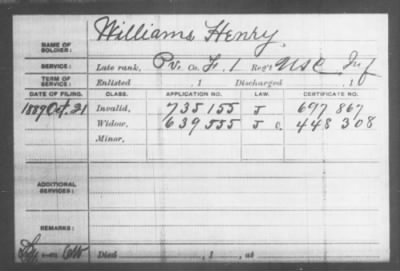 NAME OF SOLDIER: Williams Henry.
SERVICE: Late rank, Pv. Co. F. 1 Reg't USC Inf
TERM OF SERVICE: Enlisted , 1 Discharged , 1
DATE OF FILING. CLASS. APPLICATION NO. LAW. CERTIFICATE NO.
1889 Oct. 21 Invalid, 735 155 J 697 867
Widow, 639 555 J C. 448 308
Minor,
ADDITIONAL SERVICES:
REMARKS:
Died , 1 , at